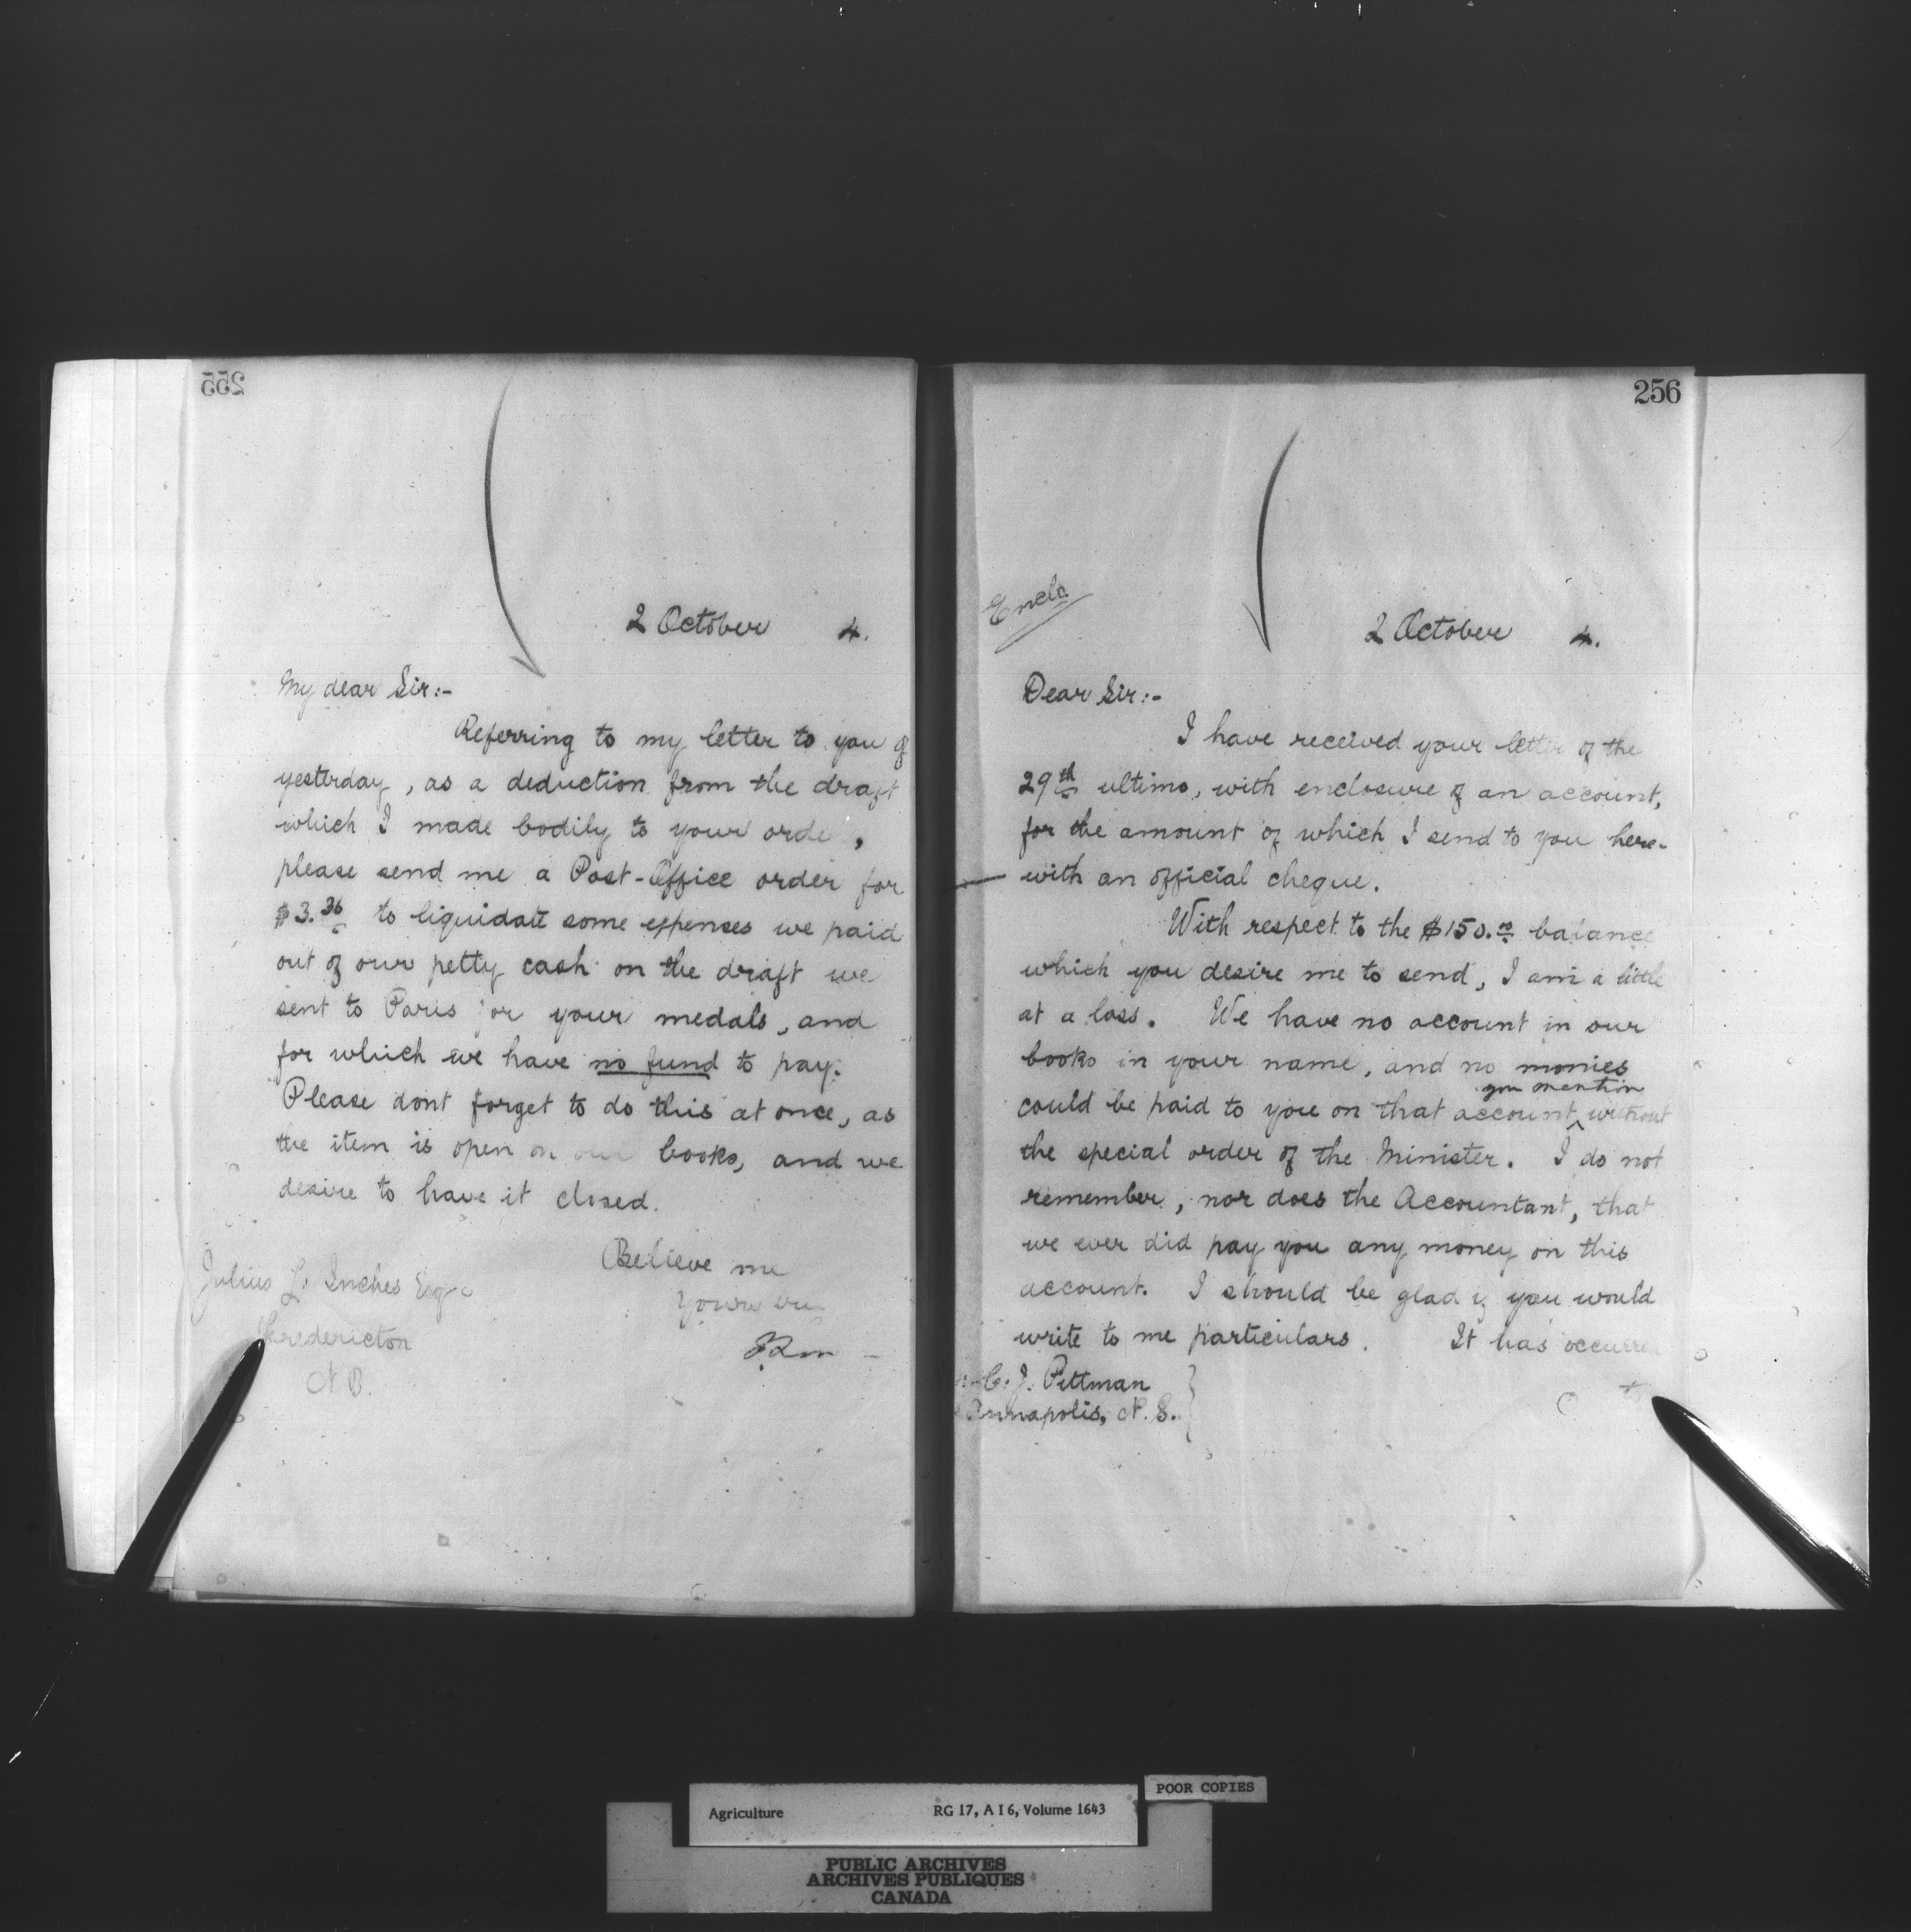 255
2 October 4.
My dear Sir:-
Referring to my letter to you of
yesterday, as a deduction from the draft
which I made bodily to your orde,
please send me a Post-Office order for
$3.36 to liquidate some expenses we paid
out of our petty cash on the draft we
sent to Paris for your medals, and
for which we have no fund to pay.
Please dont forget to do this at once, as
the item is open on our books, and we
desire to have it closed.
Believe me
Yours
Julius L. Inches Esq
Fredericton
N B.
256
Enclo
2 October 4.
Dear Sir:-
I have received your letter of the
29th ultimo, with enclosure of an account,
for the amount of which I send to you here-
with an official cheque.
With respect to the $150.00 balance
which you desire me to send, I am a little
at a loss. We have no account in our
books in your name, and no monies
you mention
could be paid to you on that account, without
the special order of the Minister. I do not
remember, nor does the Accountant, that
we ever did pay you any money on this
account. I should be glad if you would
write to me particulars. It has occurred
to
C. J. Pittman
Annapolis, N. S.
Agriculture RG 17, A I 6, Volume 1643
POOR COPIES
PUBLIC ARCHIVES
ARCHIVES PUBLIQUES
CANADA